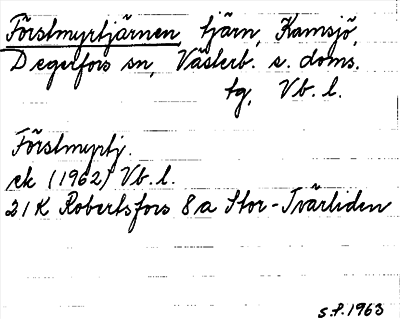 Förstmyrtjärnen, tjärn, Kamsjö,
Degerfors sn, Västerb. s. doms.
tg, Vb. l.
Förstmyrtj.
ek (1962) Vb. l.
21K Robertsfors 8a Stor-Tvärliden
S.P. 1963